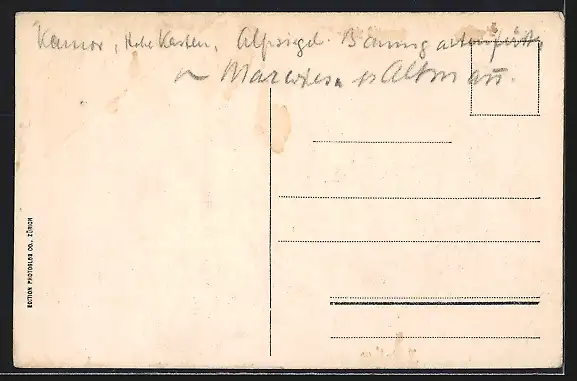 Kamor, Hohe Kasten, Alpsiegel.
Marwees. Altmann.
EDITION PHOTOGLOB CO., ZÜRICH